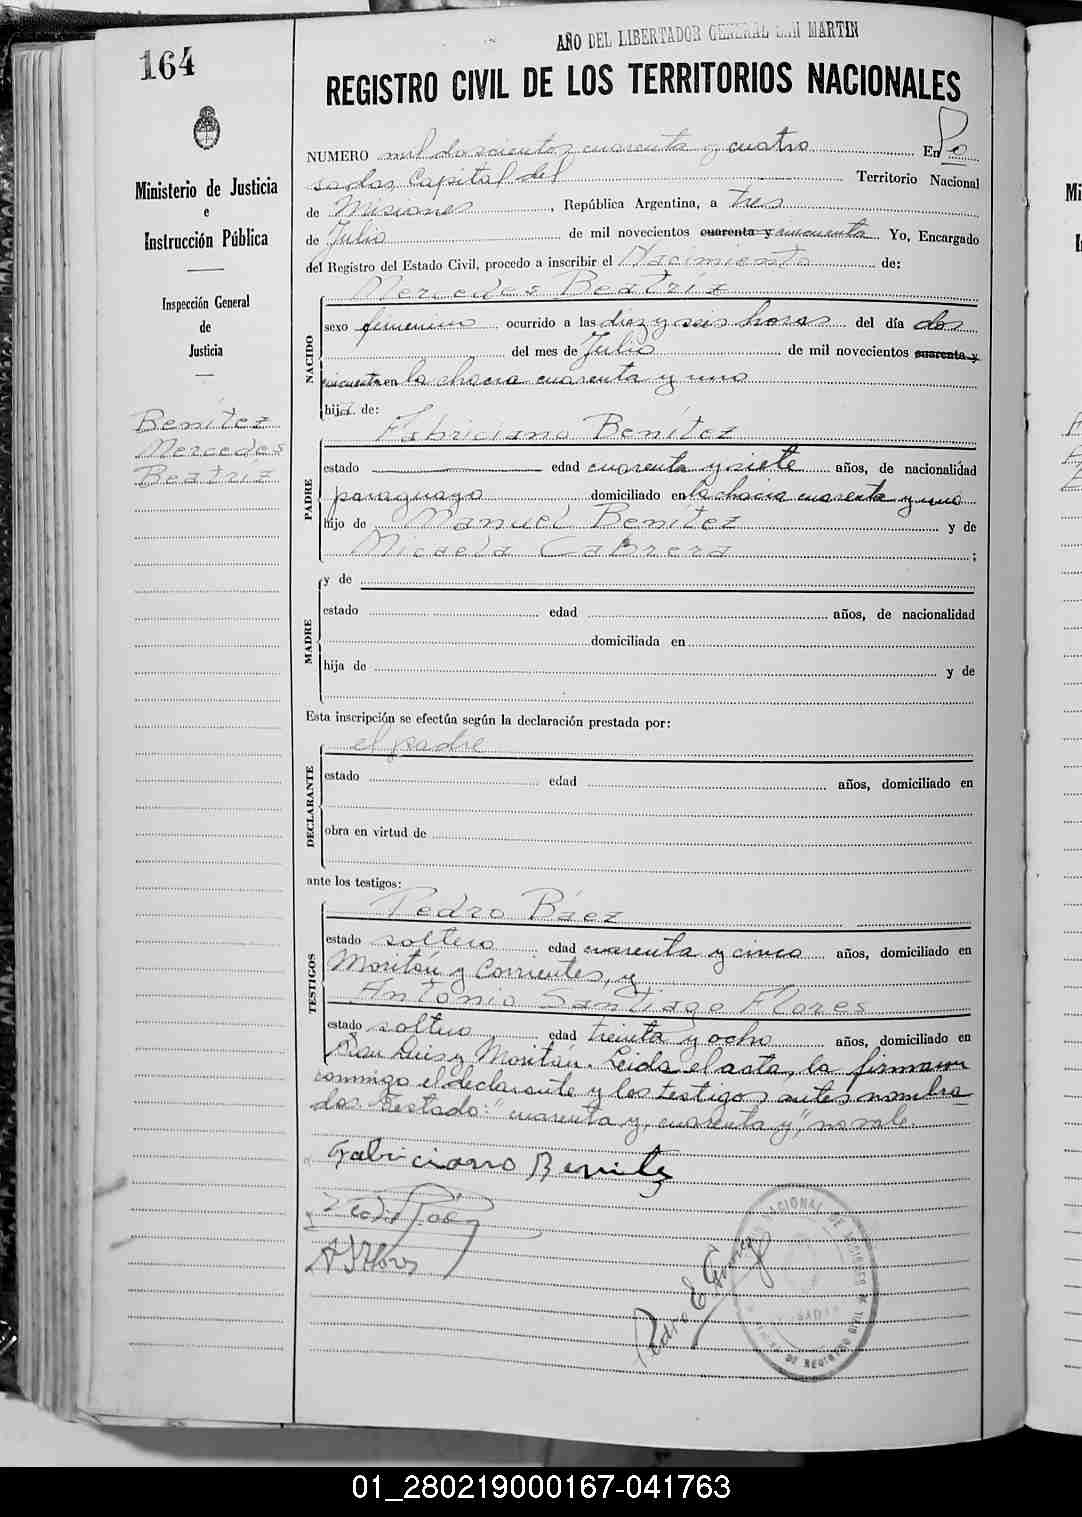 164
AÑO DEL LIBERTADOR GENERAL SAN MARTIN
REGISTRO CIVIL DE LOS TERRITORIOS NACIONALES
Ministerio de Justicia
e
Instrucción Pública
Inspección General
de
Justicia
Benítez
Mercedes
Beatríz
NUMERO mil doscientos cuarenta y cuatro En Po
sadas, Capital del Territorio Nacional
de Misiones, República Argentina, a tres
de Julio de mil novecientos cuarenta y cincuenta Yo, Encargado
del Registro del Estado Civil, procedo a inscribir el Nacimiento de:
Mercedes Beatríz
NACIDO
sexo femenino ocurrido a las diez y seis horas del día dos
del mes de Julio de mil novecientos cuarenta y
cincuenta en la chacra cuarenta y uno
hija de:
Fabriciano Benítez
PADRE
estado edad cuarenta y siete años, de nacionalidad
paraguayo domiciliado en la chacra cuarenta y uno
hijo de Manuel Benítez y de
Micaela Cabrera ;
MADRE
y de
estado edad años, de nacionalidad
domiciliada en
hija de y de
Esta inscripción se efectúa según la declaración prestada por:
el padre
DECLARANTE
estado edad años, domiciliado en
obra en virtud de
ante los testigos:
Pedro Báez
TESTIGOS
estado soltero edad cuarenta y cinco años, domiciliado en
Moritán y Corrientes, y
Antonio Santiago Flores
estado soltero edad treinta y ocho años, domiciliado en
San Luis y Moritán. Leida el acta, la firmaron
conmigo el declarante y los testigos antes nombra
dos. Testado: "cuarenta y, cuarenta y", no vale.
Fabriciano Benitez
Pedro Báez
A S Flores
Pedro E
DE REGISTRO
01_280219000167-041763